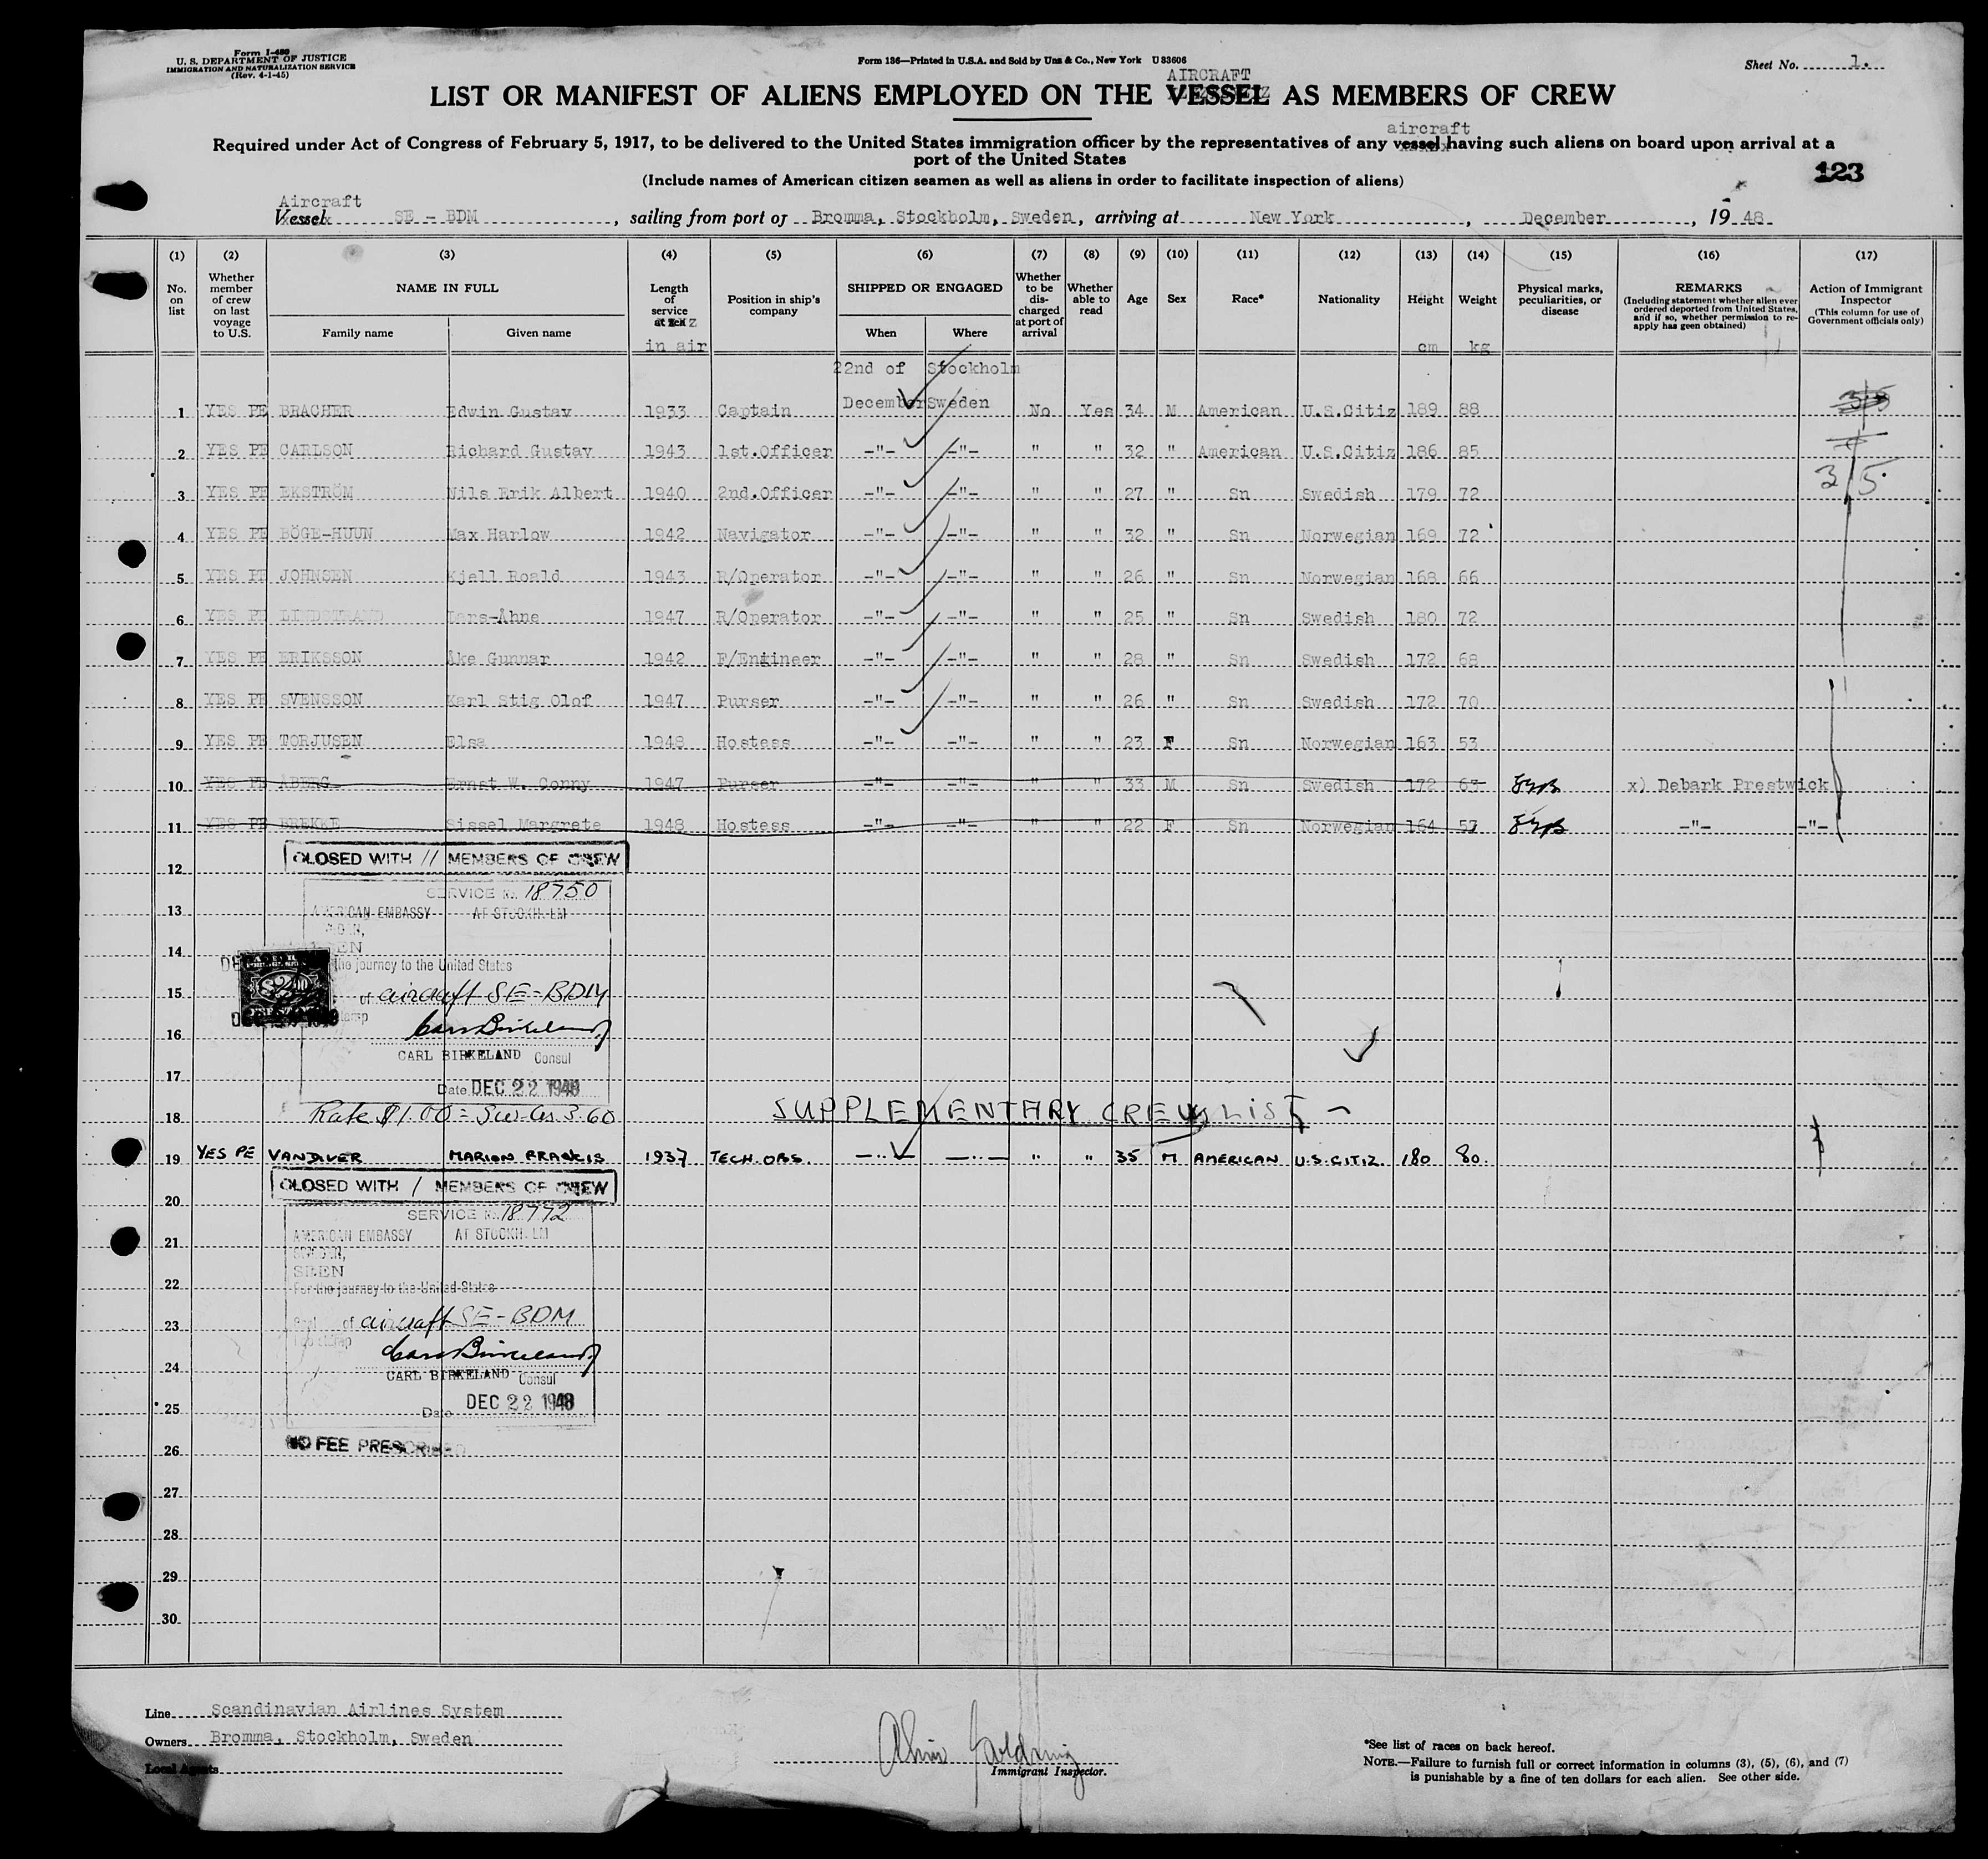 Form I-480
U. S. DEPARTMENT OF JUSTICE
IMMIGRATION AND NATURALIZATION SERVICE
(Rev. 4-1-45)
Form 136—Printed in U.S.A. and Sold by Unz & Co., New York U 33606
Sheet No. 1.
AIRCRAFT
LIST OR MANIFEST OF ALIENS EMPLOYED ON THE VESSEL AS MEMBERS OF CREW
aircraft
Required under Act of Congress of February 5, 1917, to be delivered to the United States immigration officer by the representatives of any vessel having such aliens on board upon arrival at a
port of the United States
(Include names of American citizen seamen as well as aliens in order to facilitate inspection of aliens)
123
Aircraft
Vessel SE - BDM, sailing from port of Bromma, Stockholm, Sweden, arriving at New York, December, 19 48
(1) (2) (3) (4) (5) (6) (7) (8) (9) (10) (11) (12) (13) (14) (15) (16) (17)
No. on list
Whether member of crew on last voyage to U.S.
NAME IN FULL
Family name Given name
Length of service at sea
in air
Position in ship's company
SHIPPED OR ENGAGED
When Where
Whether to be discharged at port of arrival
Whether able to read
Age
Sex
Race*
Nationality
Height
cm
Weight
kg
Physical marks, peculiarities, or disease
REMARKS
(Including statement whether alien ever ordered deported from United States, and if so, whether permission to reapply has geen obtained)
Action of Immigrant Inspector
(This column for use of Government officials only)
22nd of Stockholm
1 YES PE BRACHER Edwin Gustav 1933 Captain December Sweden No Yes 34 M American U.S.Citiz 189 88 3/5
2 YES PE CARLSON Richard Gustav 1943 1st.Officer -"- -"- " " 32 " American U.S.Citiz 186 85
3 YES PE EKSTRÖM Nils Erik Albert 1940 2nd.Officer -"- -"- " " 27 " Sn Swedish 179 72 3/5
4 YES PE BÖGE-HUUN Max Harlow 1942 Navigator -"- -"- " " 32 " Sn Norwegian 169 72
5 YES PE JOHNSEN Kjell Roald 1943 R/Operator -"- -"- " " 26 " Sn Norwegian 168 66
6 YES PE LINDSTRAND Lars-Åhne 1947 R/Operator -"- -"- " " 25 " Sn Swedish 180 72
7 YES PE ERIKSSON Åke Gunnar 1942 F/Engineer -"- -"- " " 28 " Sn Swedish 172 68
8 YES PE SVENSSON Karl Stig Olof 1947 Purser -"- -"- " " 26 " Sn Swedish 172 70
9 YES PE TORJUSEN Elsa 1948 Hostess -"- -"- " " 23 F Sn Norwegian 163 53
10 YES PE ÅBERG Ernst W. Conny 1947 Purser -"- -"- " " 33 M Sn Swedish 172 63 x) Debark Prestwick
11 YES PE BREKKE Sissel Margrete 1948 Hostess -"- -"- " " 22 F Sn Norwegian 164 57 -"- -"-
CLOSED WITH 11 MEMBERS OF CREW
12
SERVICE No. 18750
13 AMERICAN EMBASSY AT STOCKHOLM
14
the journey to the United States
15 of aircraft SE-BDM
16
CARL BIRKELAND Consul
17
Date DEC 22 1948
18 Rate $1.00 = Sw. Crs 3.60
SUPPLEMENTARY CREW LIST
19 YES PE VANDIVER MARION FRANCIS 1937 TECH. OBS. -"- -"- " " 35 M AMERICAN U.S. CITIZ. 180 80.
CLOSED WITH 1 MEMBERS OF CREW
20
SERVICE No. 18772
AMERICAN EMBASSY AT STOCKHOLM
21 SWEDEN,
22
For the journey to the United States
23 of aircraft SE-BDM
24
CARL BIRKELAND Consul
25
Date DEC 22 1948
26 NO FEE PRESCRIBED
27
28
29
30
Line Scandinavian Airlines System
Owners Bromma, Stockholm, Sweden
Local Agents
Immigrant Inspector.
*See list of races on back hereof.
NOTE.—Failure to furnish full or correct information in columns (3), (5), (6), and (7)
is punishable by a fine of ten dollars for each alien. See other side.